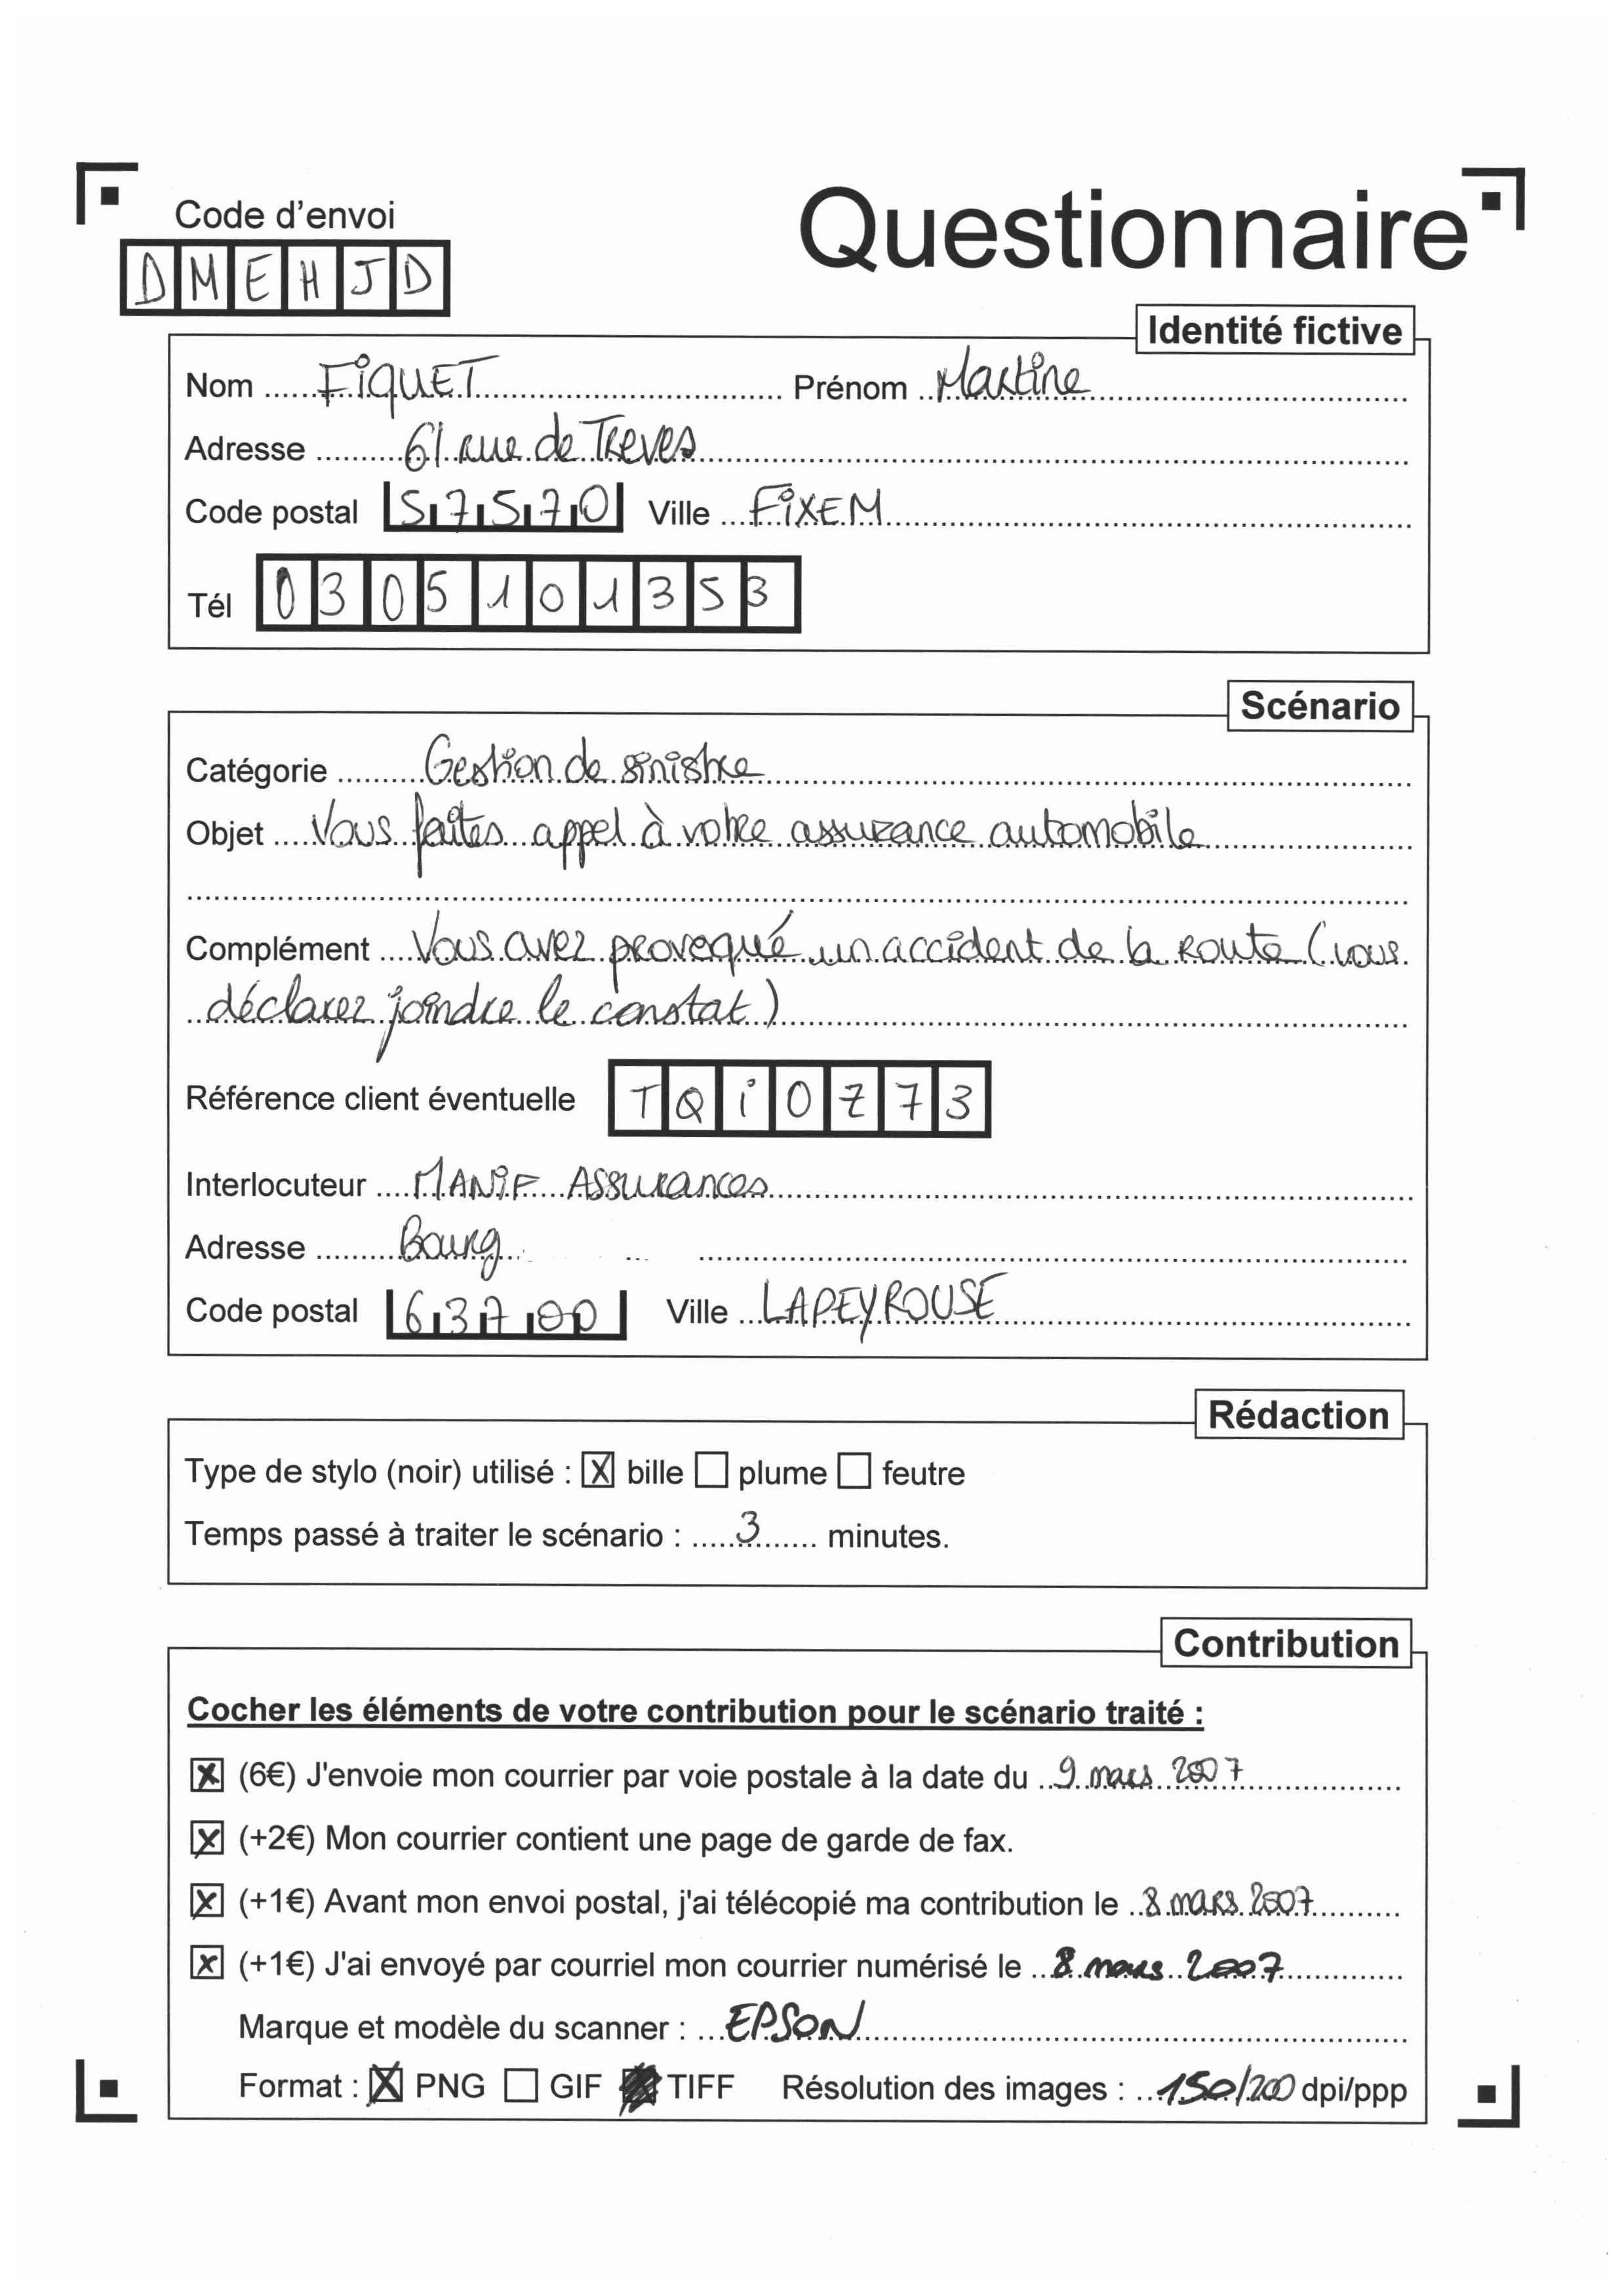 Code d'envoi
DMEHJD
Questionnaire
Identité fictive
Nom FiQUET Prénom Martine
Adresse 61 rue de Treves
Code postal 57570 Ville FiXEM
Tél 0305101353
Scénario
Catégorie Gestion de sinistre
Objet Vous faites appel à votre assurance automobile
Complément Vous avez provoqué un accident de la route (vous
déclarez joindre le constat)
Référence client éventuelle TQi0Z73
Interlocuteur MANiF Assurances
Adresse Bourg
Code postal 63700 Ville LAPEYROUSE
Rédaction
Type de stylo (noir) utilisé : X bille plume feutre
Temps passé à traiter le scénario : 3 minutes.
Contribution
Cocher les éléments de votre contribution pour le scénario traité :
X (6€) J'envoie mon courrier par voie postale à la date du 9 mars 2007
X (+2€) Mon courrier contient une page de garde de fax.
X (+1€) Avant mon envoi postal, j'ai télécopié ma contribution le 8 mars 2007
X (+1€) J'ai envoyé par courriel mon courrier numérisé le 8 mars 2007
Marque et modèle du scanner : EPSON
Format : X PNG GIF TIFF Résolution des images : 150/200 dpi/ppp